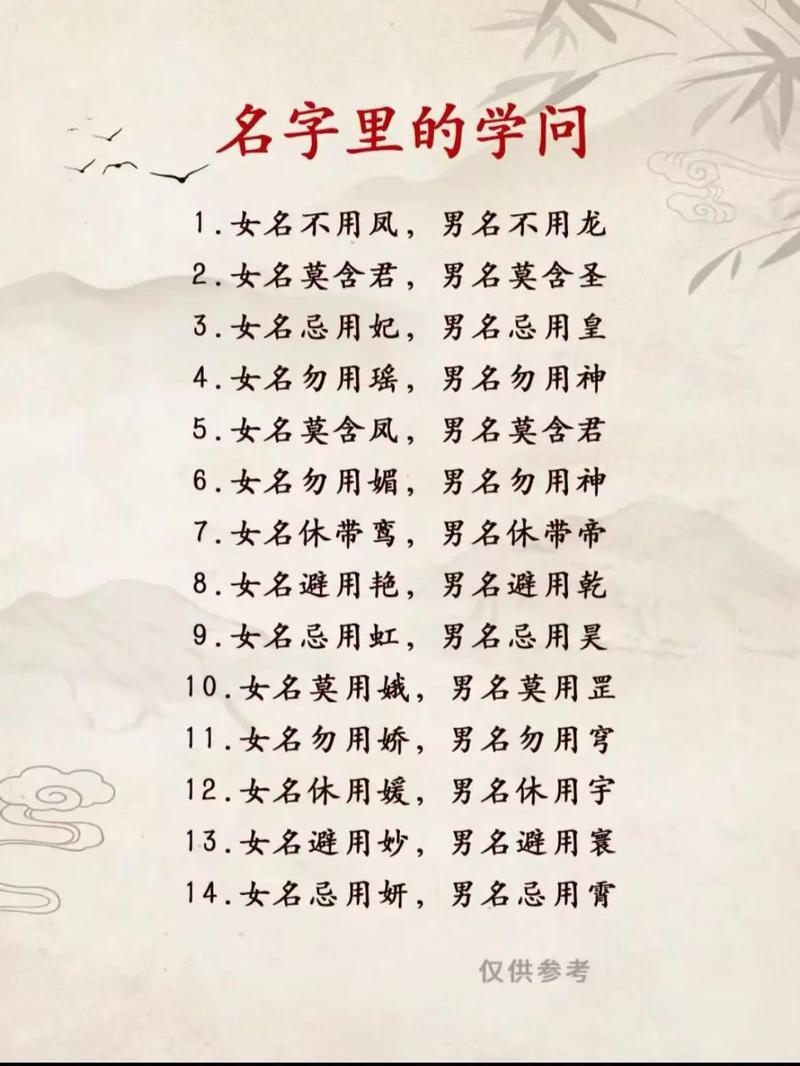 名字里的学问
1.女名不用凤，男名不用龙
2.女名莫含君，男名莫含圣
3.女名忌用妃，男名忌用皇
4.女名勿用瑶，男名勿用神
5.女名莫含凤，男名莫含君
6.女名勿用媚，男名勿用神
7.女名休带鸾，男名休带帝
8.女名避用艳，男名避用乾
9.女名忌用虹，男名忌用昊
10.女名莫用娥，男名莫用罡
11.女名勿用娇，男名勿用穹
12.女名休用媛，男名休用宇
13.女名避用妙，男名避用寰
14.女名忌用妍，男名忌用霄
仅供参考